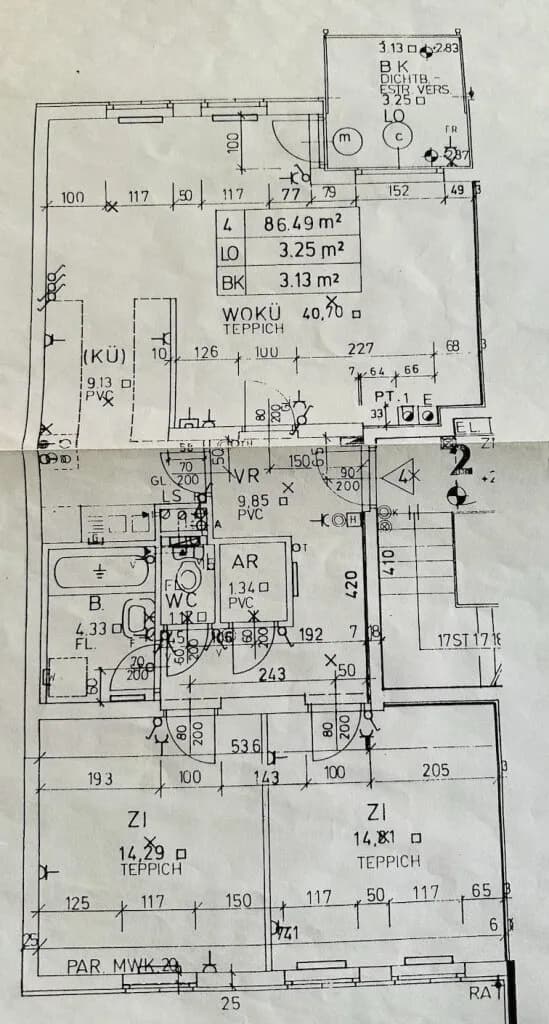 3.13 □ -2.83
BK
DICHTB.-
ESTR. VERS.
3.25 □
LO
m c FR
-2.87
100
100 117 50 117 77 79 152 49 3
4 86.49 m²
LO 3.25 m²
BK 3.13 m²
WOKÜ 40,70 □
TEPPICH
(KÜ)
9.13 □
PVC
10 126 100 227 68 3
7 64 66
PT. 1 E
33
80
200
EL.
2
50 VR 150 65
70
200
GL
90
200
4
LS
9,85 □
PVC
A
H
K
AR
T
1.34 □
PVC
420
410
B.
4.33 □
FL.
FL.
WC
1.17 □
45 106 192 7 18
17 ST 17
60
200
80
200
70
200
60
243 50
80
200
80
200
536
193 100 143 100 205 3
ZI
14,29 □
TEPPICH
ZI
14,81 □
TEPPICH
125 117 150 117 50 117 65 3
741 6
25
PAR. MWK. 20
25
RA